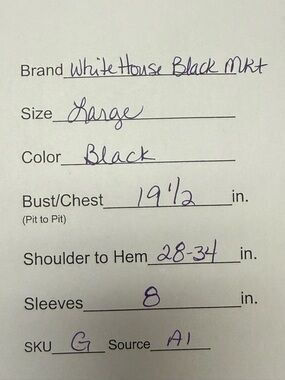 Brand White House Black Mkt
Size Large
Color Black
Bust/Chest 19 1/2 in.
(Pit to Pit)
Shoulder to Hem 28-34 in.
Sleeves 8 in.
SKU G Source A1